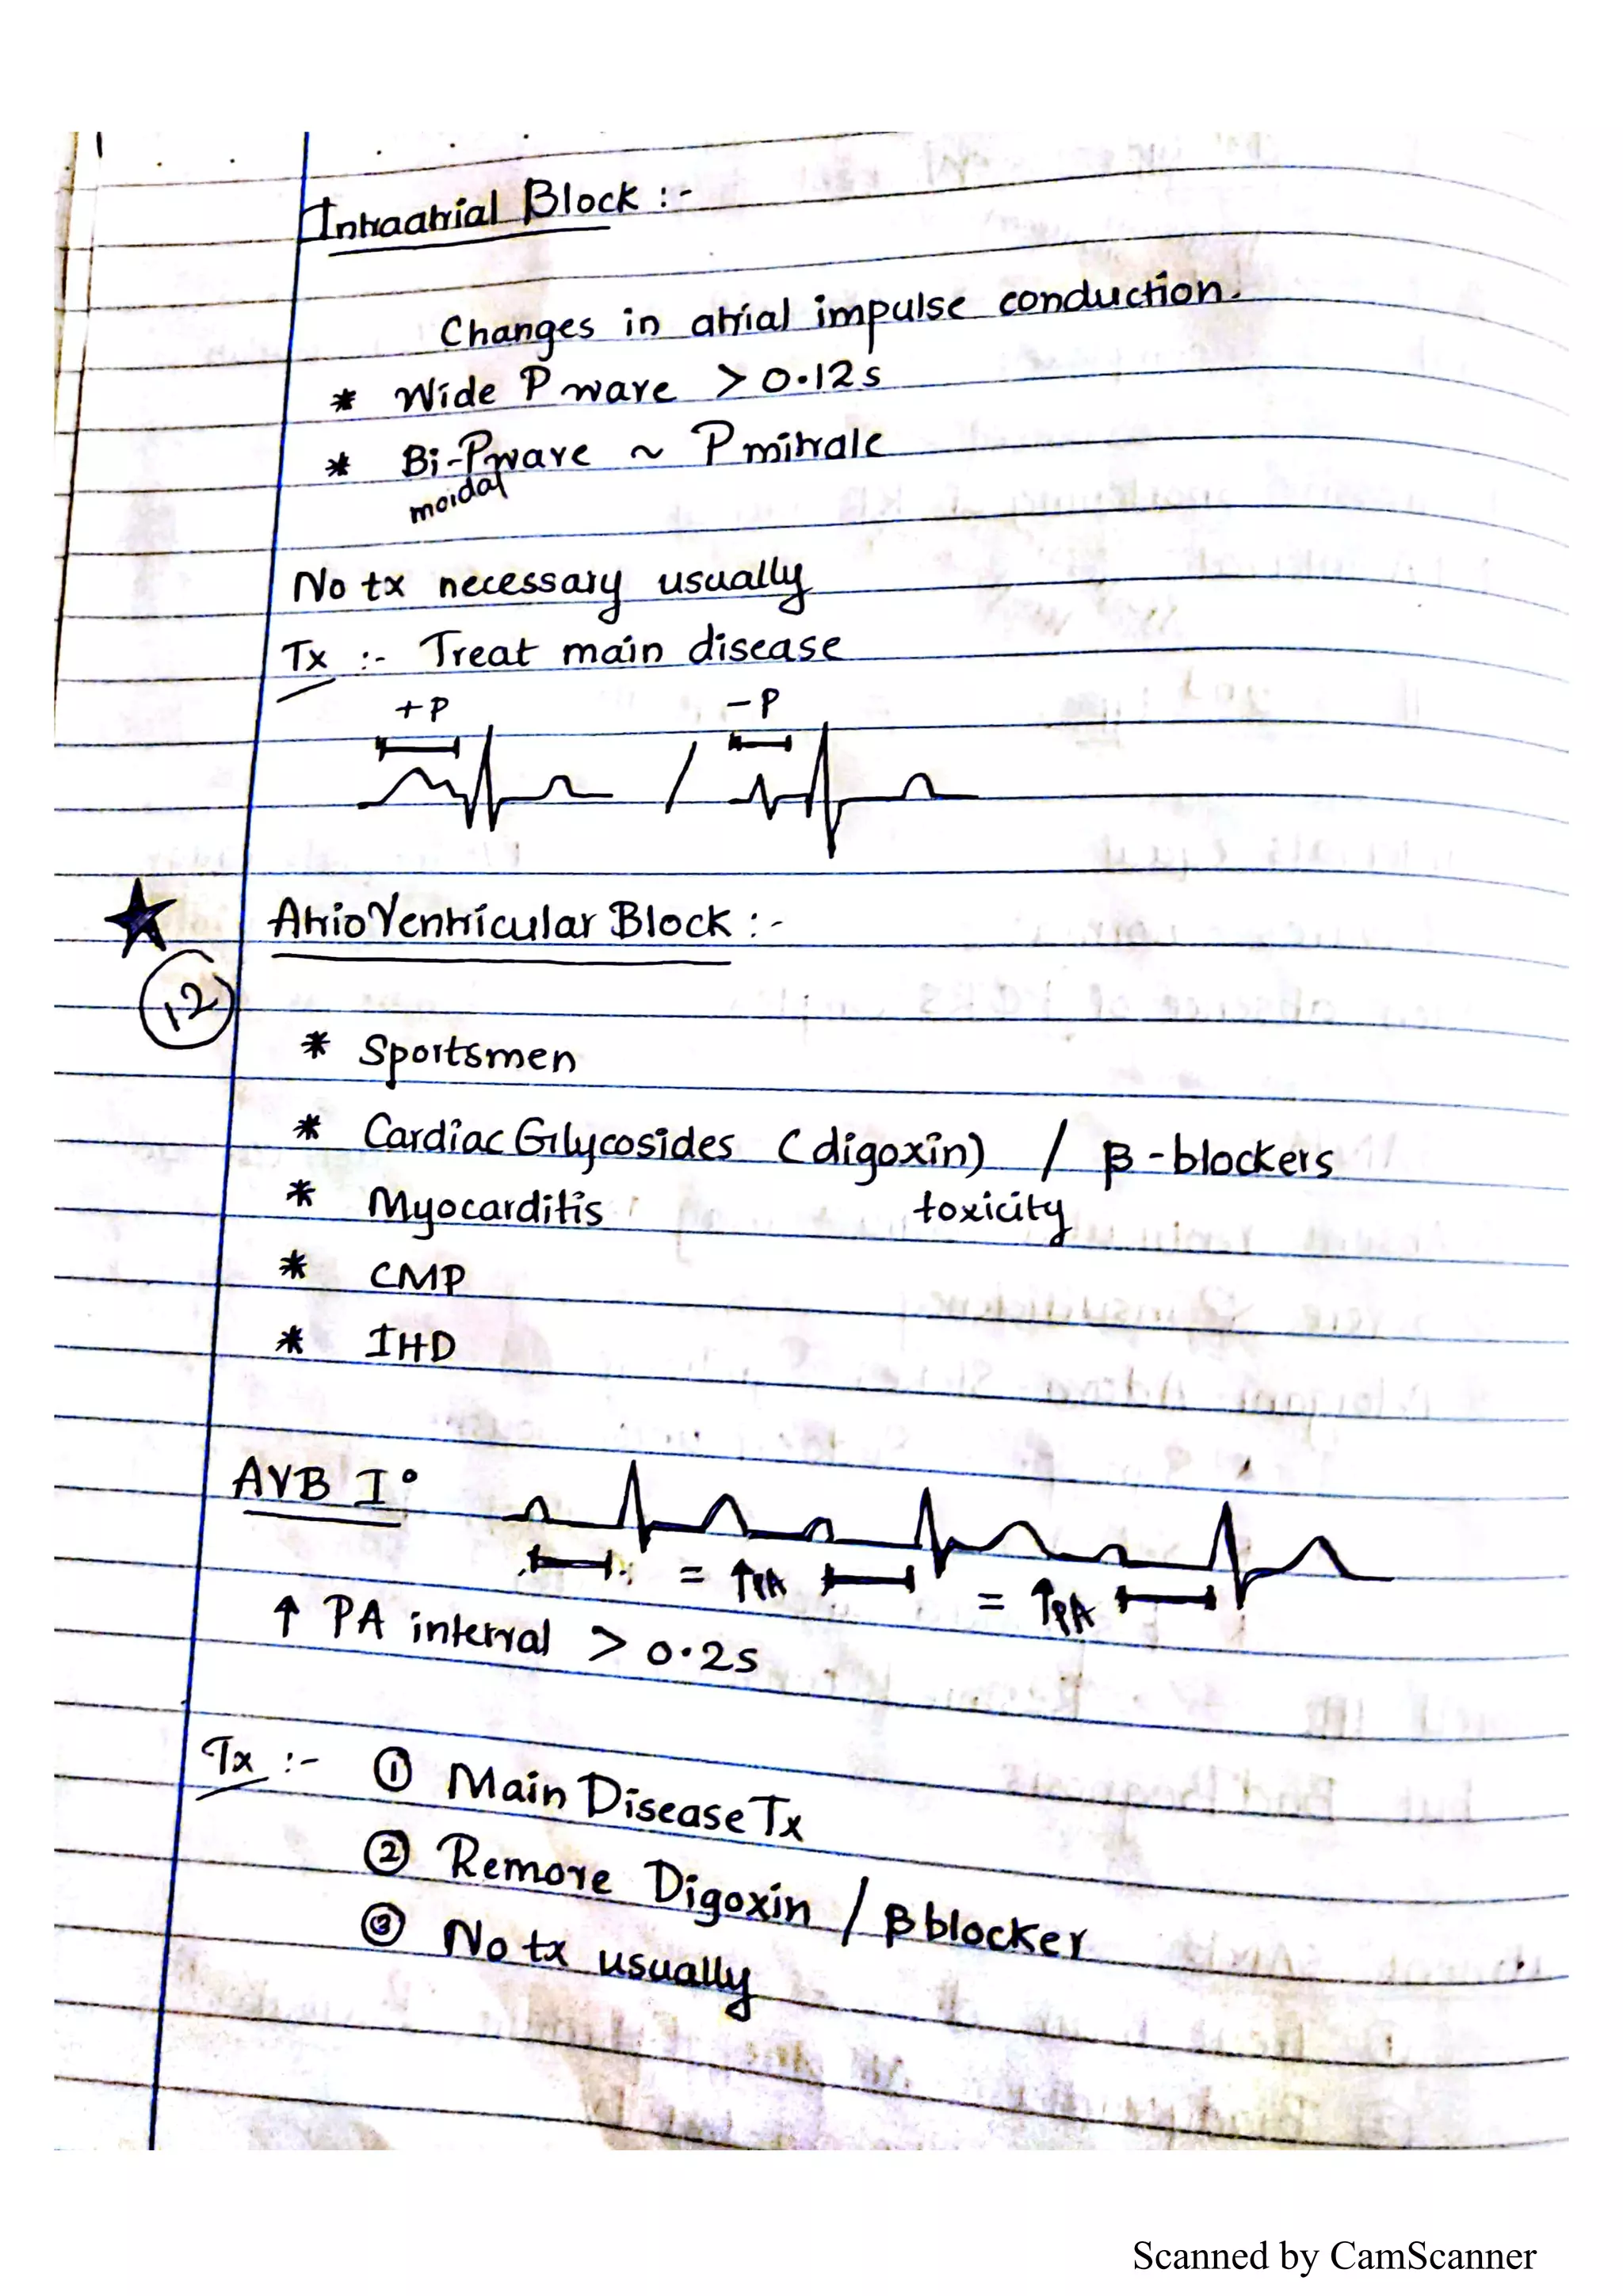 Intraatrial Block :-
Changes in atrial impulse conduction.
* Wide P wave > 0.12s
* Bi-P wave ~ P mitrale
moidal
No tx necessary usually
Tx :- Treat main disease
+P / -P
★ AtrioVentricular Block :-
12
* Sportsmen
* Cardiac Glycosides (digoxin) / β-blockers
* Myocarditis toxicity
* CMP
* IHD
AVB I°
= ↑PA = ↑PA
↑ PA interval > 0.2s
Tx :- ① Main Disease Tx
② Remove Digoxin / β blocker
③ No tx usually
Scanned by CamScanner